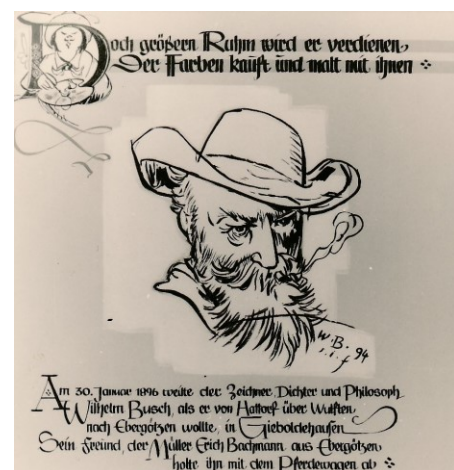 Doch größern Ruhm wird er verdienen,
Der Farben kauft und malt mit ihnen
W.B. 94
Am 30. Januar 1896 weilte der Zeichner, Dichter und Philosoph
Wilhelm Busch, als er von Hattorf über Wulften
nach Ebergötzen wollte, in Gieboldehausen
Sein Freund, der Müller Erich Bachmann aus Ebergötzen
holte ihn mit dem Pferdewagen ab